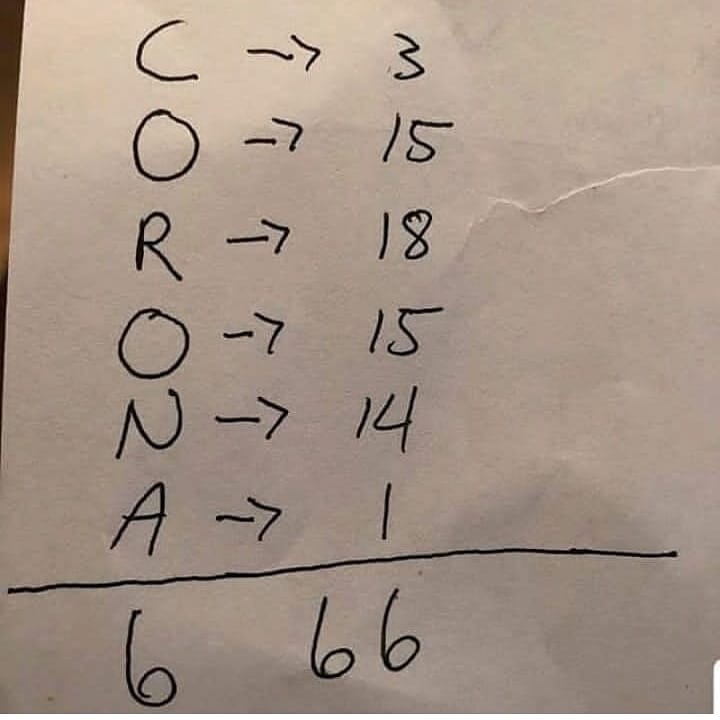 C -> 3
O -> 15
R -> 18
O -> 15
N -> 14
A -> 1
6 66